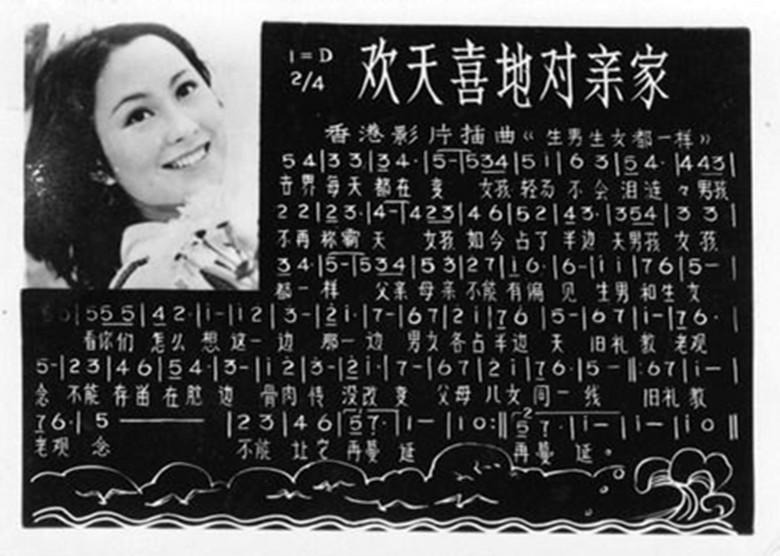 1=D
2/4
欢天喜地对亲家
香港影片插曲《生男生女都一样》
5 4|3 3|3 4·|5-|534|5 i|6 3|5 4·|443|
世界每天 都在 变 女孩 轻易 不 会 泪涟 々 男孩
2 2|2 3·|4-|423|4 6|5 2|4 3·|354|3 3|
不再 称霸 天 女孩 如今 占了 半边 天男孩 女 孩
3 4·|5-|534|5 3|2 7|1 6·|6-|i i|7 6|5-|
都 一 样 父亲 母亲 不能 有偏 见 生男 和生 女
|55 5|4 2·|i-|i 2|3-|2 i·|7-|6 7|2 i|7 6|5-|6 7|i-|7 6·|
看你们 怎么 想 这一 边 那一 边 男女 各占 半边 天 旧礼 教 老观
5-|2 3|4 6|5 4·|3-|i 2|3-|2 i·|7-|6 7|2 i|7 6·|5-‖:6 7|i-|
念 不能 存留 在脑 边 骨肉 情 没改 变 父母 儿女 同一 线 旧礼 教
7 6·|5 ———|2 3|4 6|5 7·|i-|i 0:‖5 7·|i-|i-|i 0‖
老观 念 不能 让它 再蔓 延 再蔓 延。